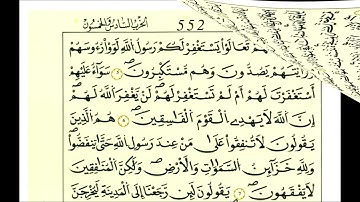 الحزب السادس والخمسون 552
لهم تعالوا يستغفر لكم رسول الله لووا رءوسهم
ورأيتهم يصدون وهم مستكبرون ٥ سواء عليهم
أستغفرت لهم أم لم تستغفر لهم لن يغفر الله لهم
إن الله لا يهدي القوم الفاسقين ٦ هم الذين
يقولون لا تنفقوا على من عند رسول الله حتى ينفضوا
ولله خزائن السماوات والأرض ولكن المنافقين
لا يفقهون ٧ يقولون لئن رجعنا إلى المدينة ليخرجن